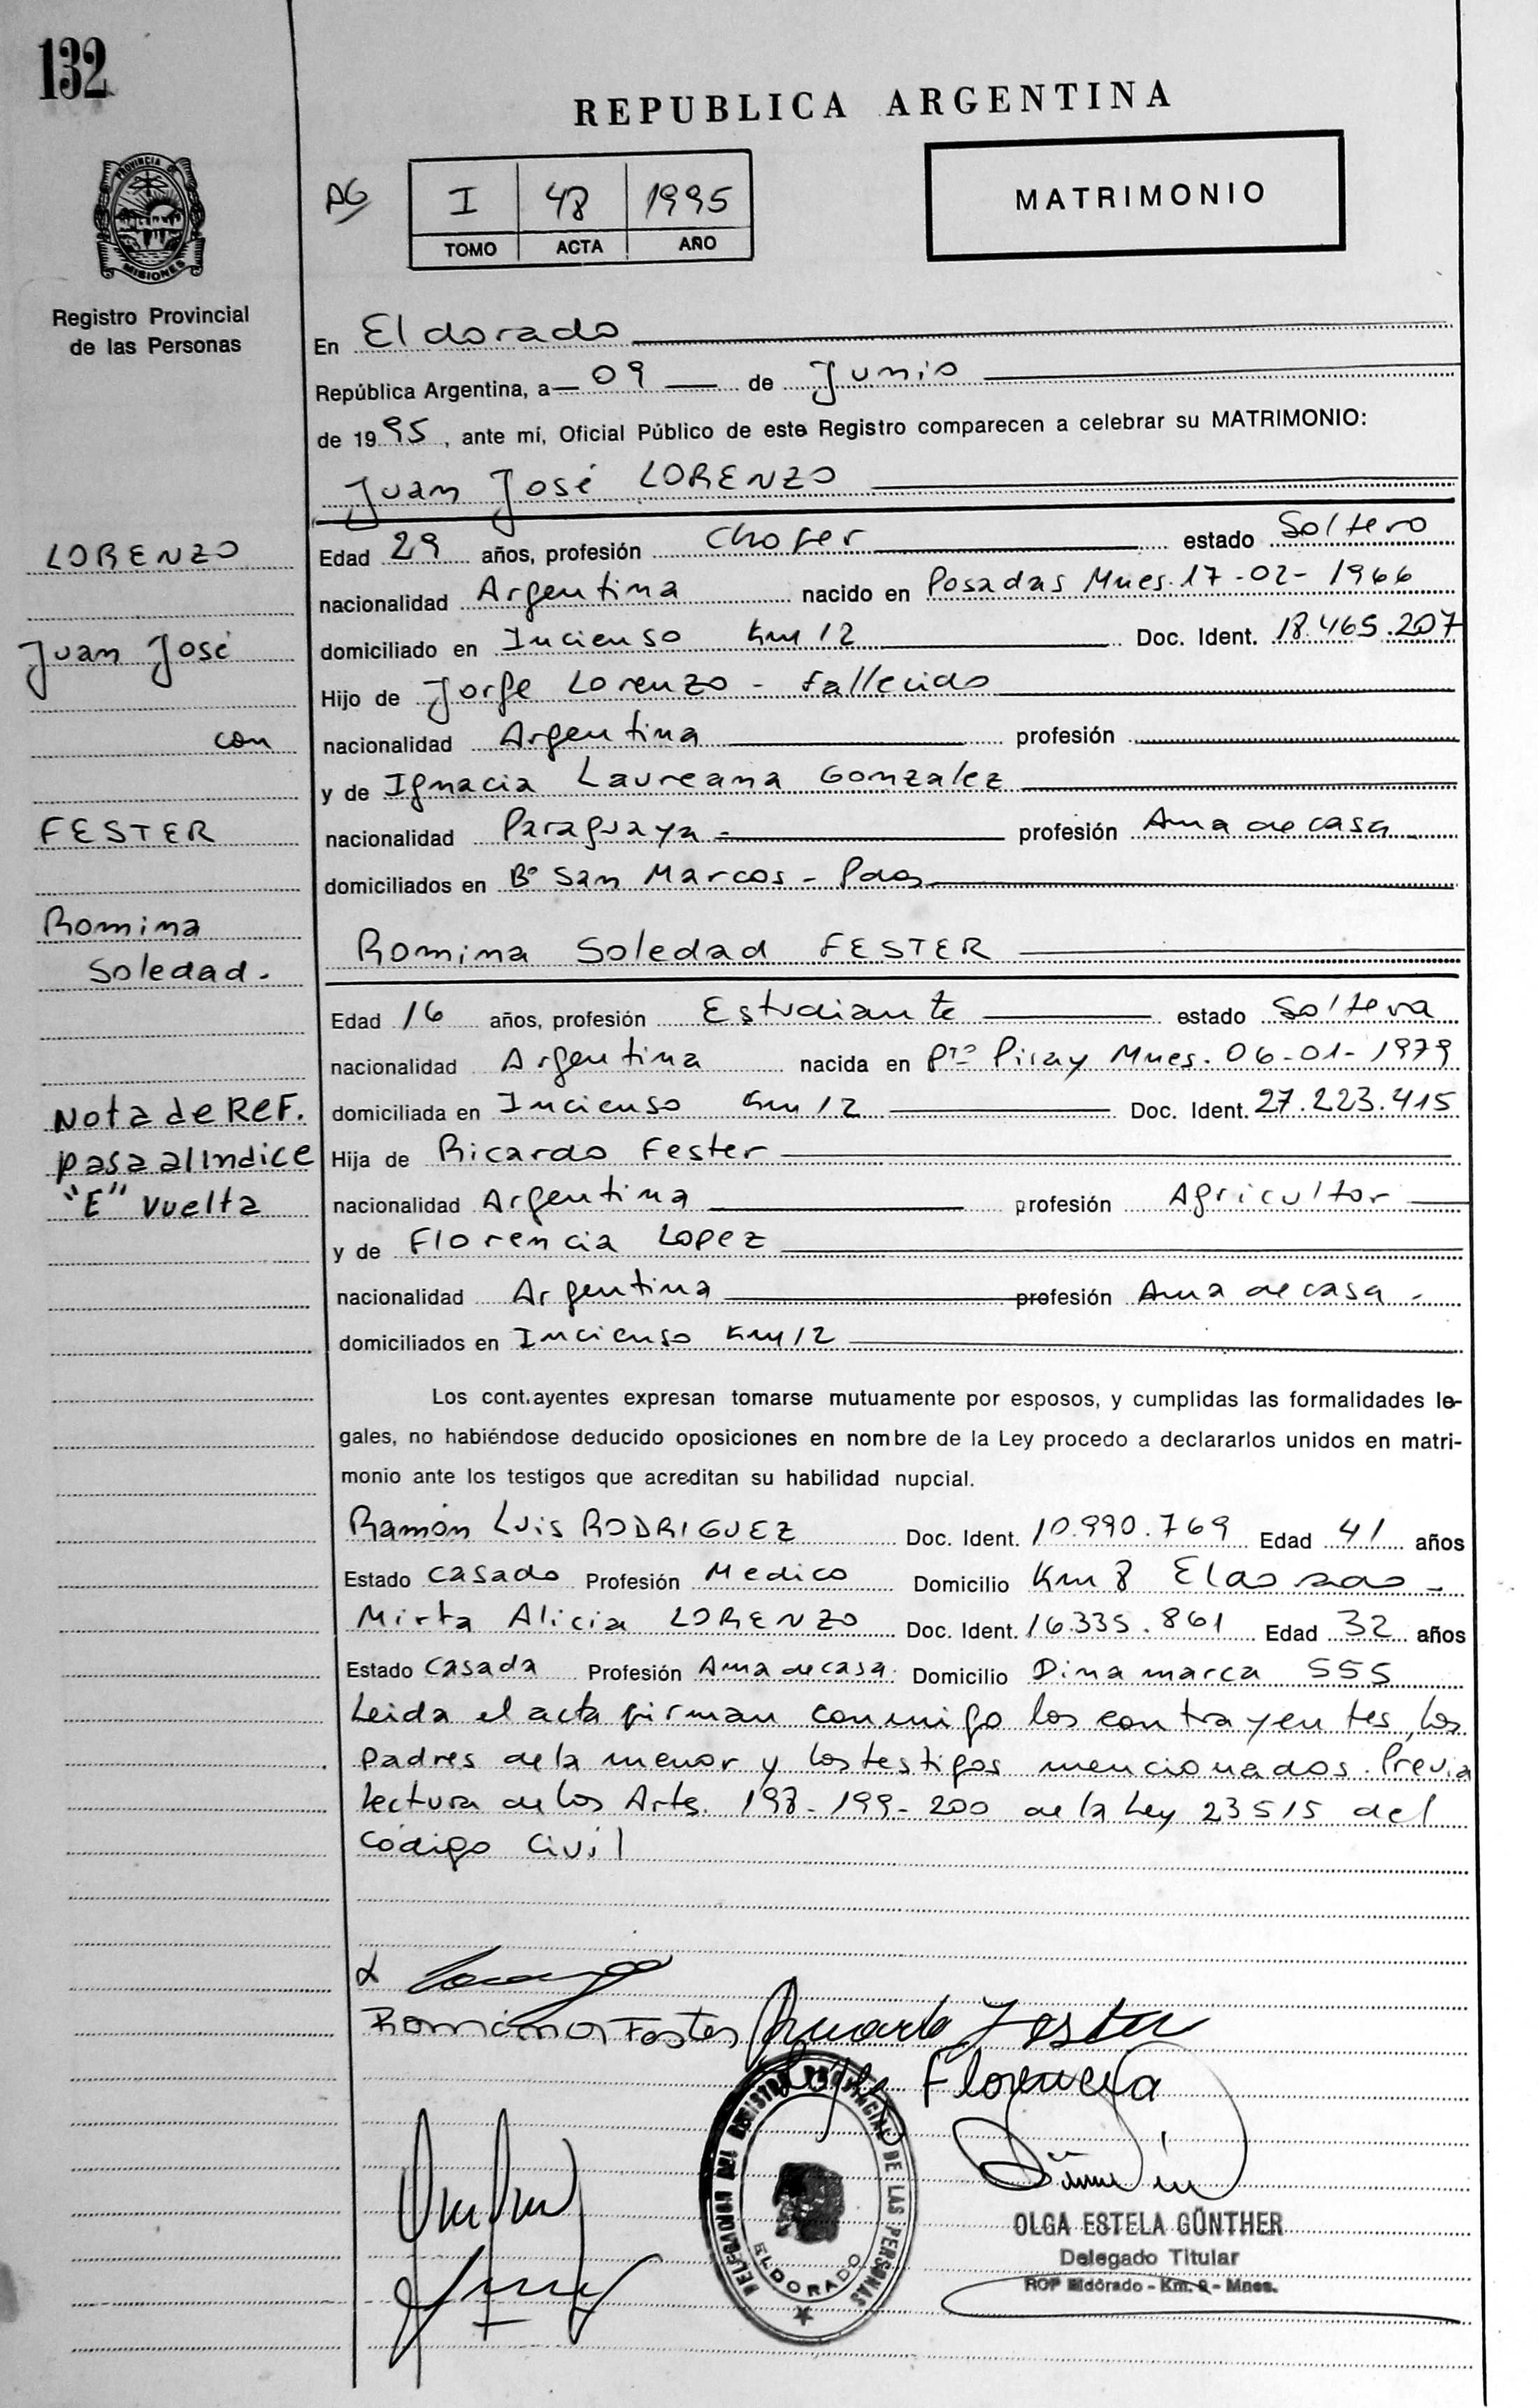 132
REPUBLICA ARGENTINA
PROVINCIA DE
MISIONES
Registro Provincial
de las Personas
AG
I 48 1995
TOMO ACTA AÑO
MATRIMONIO
En Eldorado
República Argentina, a 09 de Junio
de 1995, ante mí, Oficial Público de este Registro comparecen a celebrar su MATRIMONIO:
Juan José LORENZO
LORENZO
Juan José
con
FESTER
Romina
Soledad.
Nota de REF.
pasa al Indice
"E" vuelta
Edad 29 años, profesión Chofer estado Soltero
nacionalidad Argentina nacido en Posadas Mnes. 17-02-1966
domiciliado en Incienso Km 12 Doc. Ident. 18.465.207
Hijo de Jorge Lorenzo - Fallecido
nacionalidad Argentina profesión
y de Ignacia Laureana Gonzalez
nacionalidad Paraguaya - profesión Ama de casa
domiciliados en Bº San Marcos - Pdas
Romina Soledad FESTER
Edad 16 años, profesión Estudiante estado Soltera
nacionalidad Argentina nacida en Pto Piray Mnes. 06-01-1979
domiciliada en Incienso Km 12 Doc. Ident. 27.223.415
Hija de Ricardo Fester
nacionalidad Argentina profesión Agricultor
y de Florencia Lopez
nacionalidad Argentina profesión Ama de casa -
domiciliados en Incienso Km 12
Los cont.ayentes expresan tomarse mutuamente por esposos, y cumplidas las formalidades le-
gales, no habiéndose deducido oposiciones en nombre de la Ley procedo a declararlos unidos en matri-
monio ante los testigos que acreditan su habilidad nupcial.
Ramón Luis RODRIGUEZ Doc. Ident. 10.990.769 Edad 41 años
Estado Casado Profesión Medico Domicilio Km 8 Eldorado -
Mirta Alicia LORENZO Doc. Ident. 16.335.861 Edad 32 años
Estado Casada Profesión Ama de casa Domicilio Dinamarca 555
Leida el acta firman conmigo los contrayentes, los
padres de la menor y los testigos mencionados. Previa
lectura de los Arts. 198-199-200 de la Ley 23515 del
Código Civil
Romina Fester Ricardo Fester
Lopez Florencia
DELEGACION DEL REGISTRO PROVINCIAL DE LAS PERSONAS
ELDORADO
OLGA ESTELA GÜNTHER
Delegado Titular
RDP Eldorado - Km. 9 - Mnes.